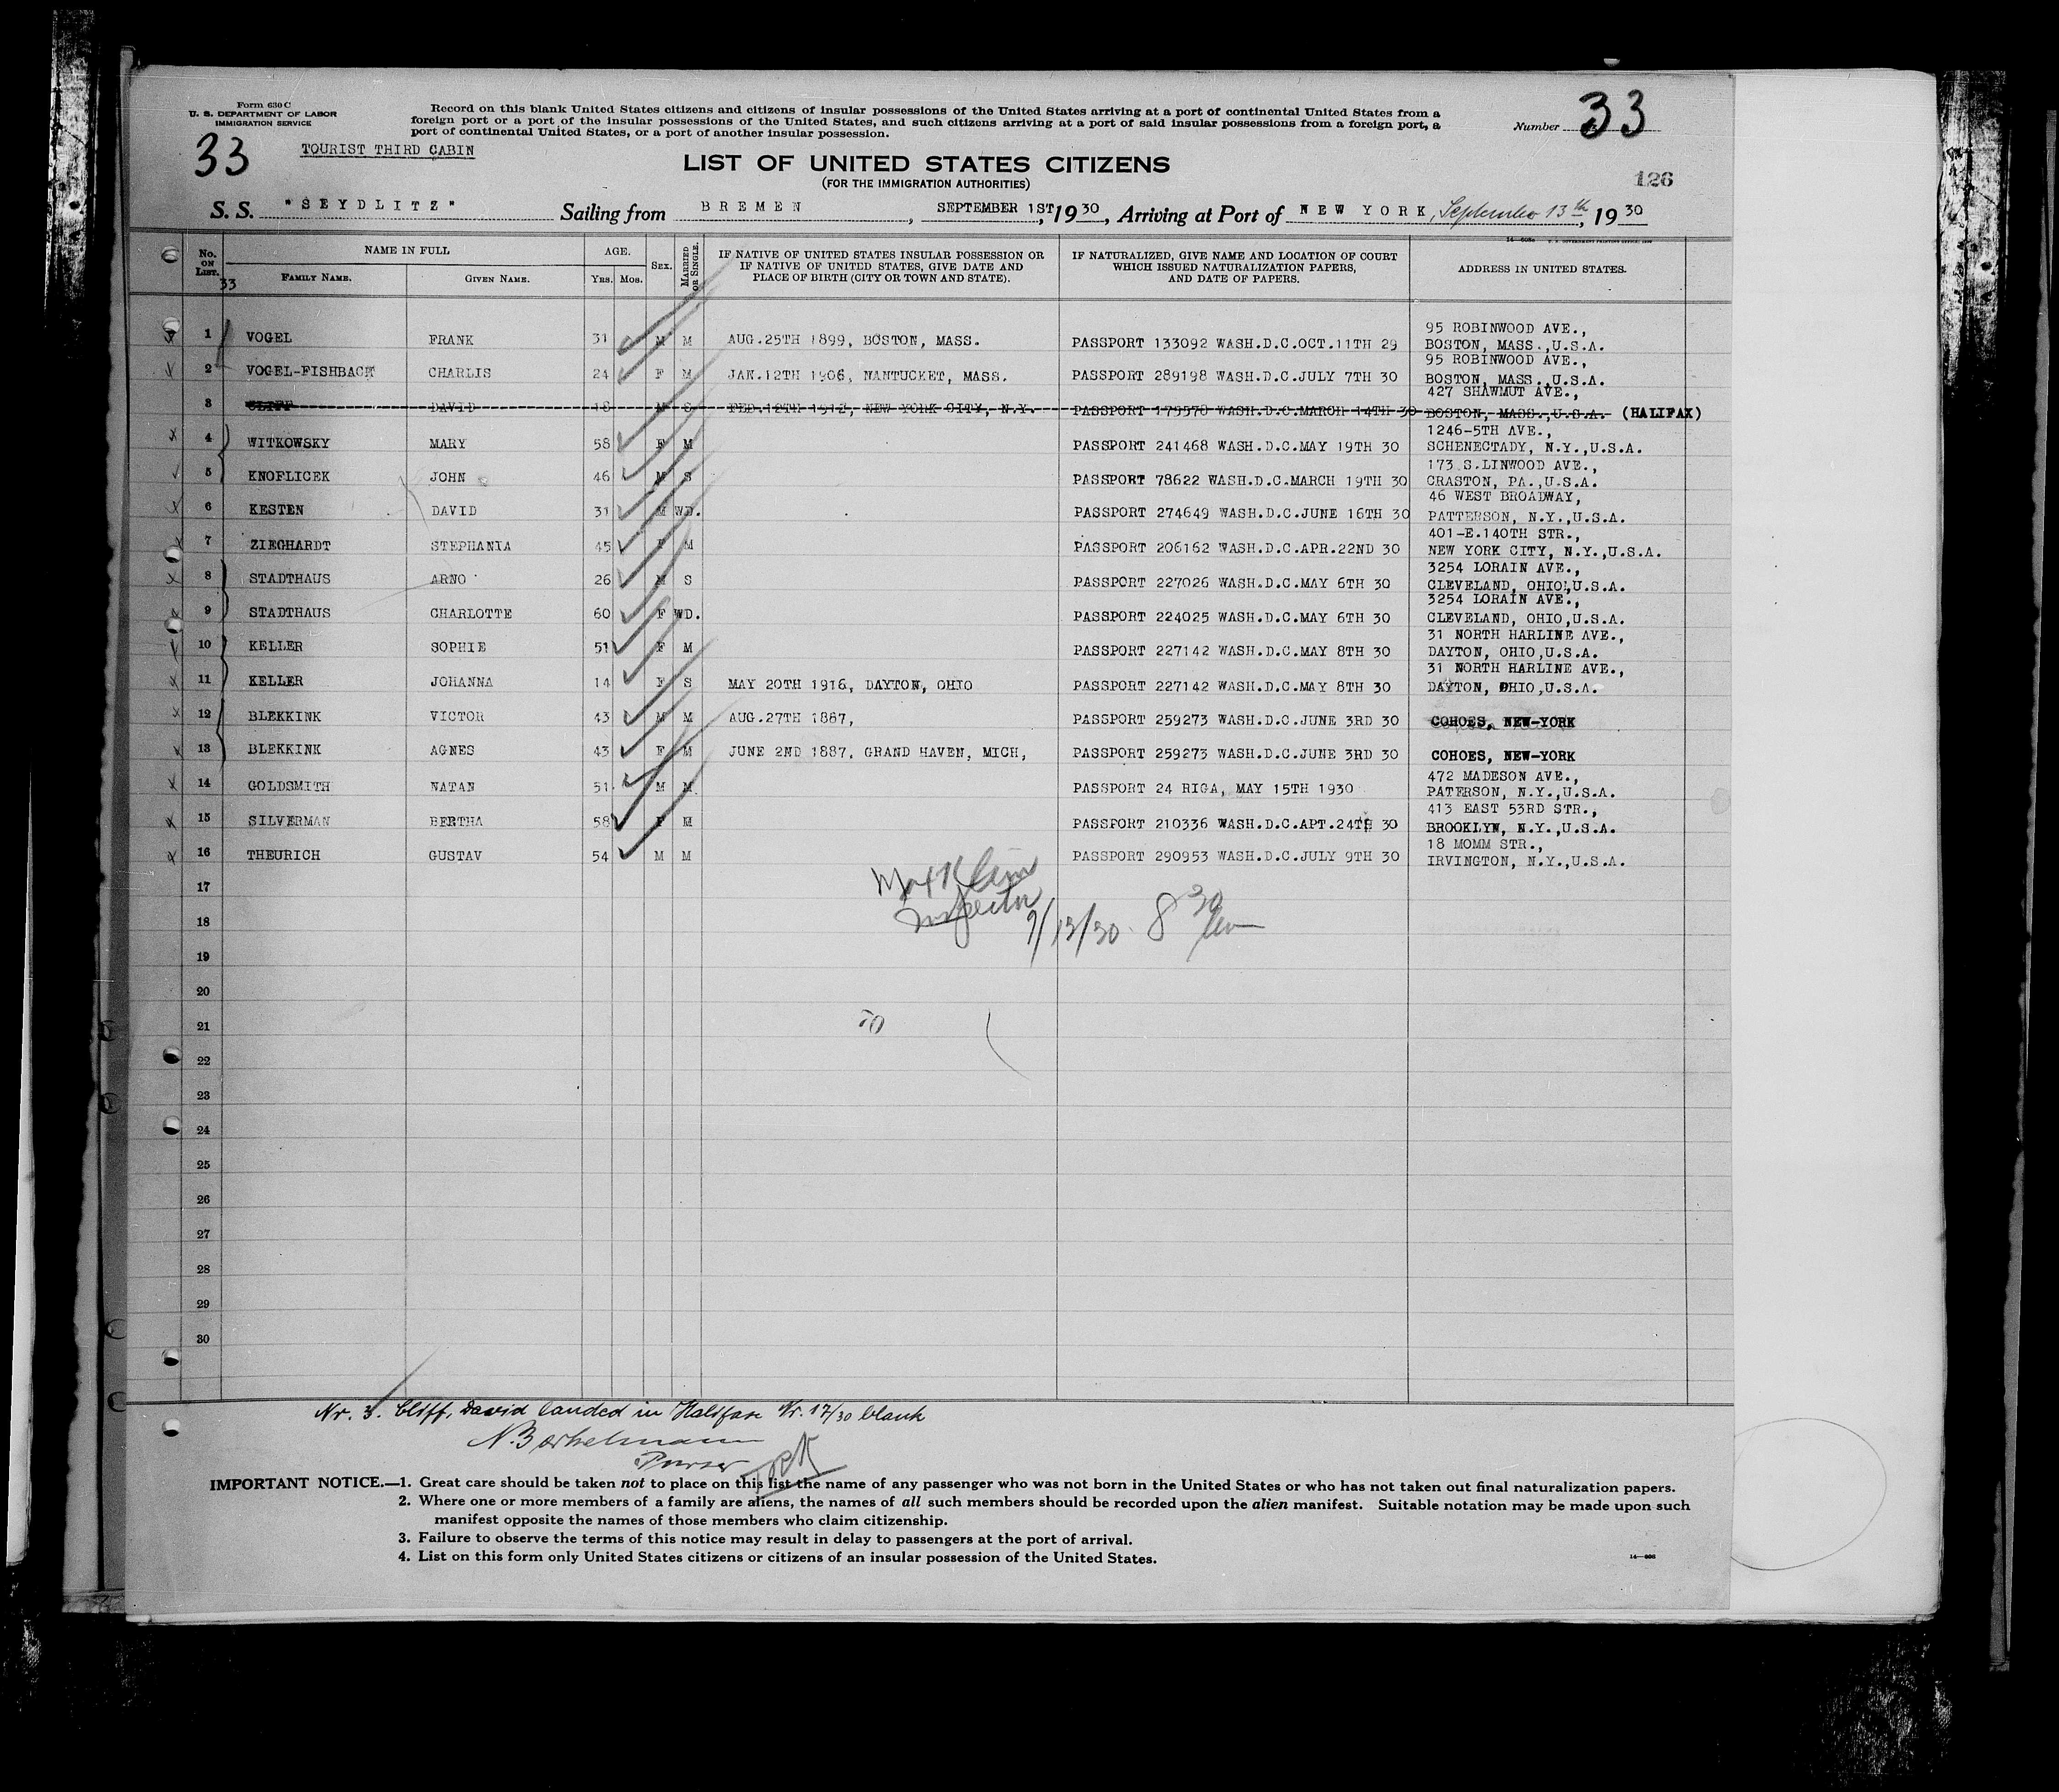 Form 630 C
U. S. DEPARTMENT OF LABOR
IMMIGRATION SERVICE
Record on this blank United States citizens and citizens of insular possessions of the United States arriving at a port of continental United States from a
foreign port or a port of the insular possessions of the United States, and such citizens arriving at a port of said insular possessions from a foreign port, a
port of continental United States, or a port of another insular possession.
Number 33
33
TOURIST THIRD CABIN
LIST OF UNITED STATES CITIZENS
(FOR THE IMMIGRATION AUTHORITIES)
126
S. S. "SEYDLITZ" Sailing from BREMEN, SEPTEMBER 1ST, 1930, Arriving at Port of NEW YORK, September 13th, 1930
No. ON LIST. NAME IN FULL FAMILY NAME. GIVEN NAME. AGE. YRS. MOS. SEX. MARRIED OR SINGLE. IF NATIVE OF UNITED STATES INSULAR POSSESSION OR IF NATIVE OF UNITED STATES, GIVE DATE AND PLACE OF BIRTH (CITY OR TOWN AND STATE). IF NATURALIZED, GIVE NAME AND LOCATION OF COURT WHICH ISSUED NATURALIZATION PAPERS, AND DATE OF PAPERS. ADDRESS IN UNITED STATES.
33
1 VOGEL FRANK 31 M M AUG.25TH 1899, BOSTON, MASS. PASSPORT 133092 WASH.D.C.OCT.11TH 29 95 ROBINWOOD AVE., BOSTON, MASS.,U.S.A.
2 VOGEL-FISHBACK CHARLIS 24 F M JAN.12TH 1906, NANTUCKET, MASS. PASSPORT 289198 WASH.D.C.JULY 7TH 30 95 ROBINWOOD AVE., BOSTON, MASS.,U.S.A.
3 CLIFF DAVID 18 M S FEB.12TH 1912, NEW YORK CITY, N.Y. PASSPORT 179578 WASH.D.C.MARCH 14TH 30 427 SHAWMUT AVE., BOSTON, MASS.,U.S.A. (HALIFAX)
4 WITKOWSKY MARY 58 F M PASSPORT 241468 WASH.D.C.MAY 19TH 30 1246-5TH AVE., SCHENECTADY, N.Y.,U.S.A.
5 KNOFLICEK JOHN 46 M S PASSPORT 78622 WASH.D.C.MARCH 19TH 30 173 S.LINWOOD AVE., CRASTON, PA.,U.S.A.
6 KESTEN DAVID 31 M WD. PASSPORT 274649 WASH.D.C.JUNE 16TH 30 46 WEST BROADWAY, PATTERSON, N.Y.,U.S.A.
7 ZIEGHARDT STEPHANIA 45 F M PASSPORT 206162 WASH.D.C.APR.22ND 30 401-E.140TH STR., NEW YORK CITY, N.Y.,U.S.A.
8 STADTHAUS ARNO 26 M S PASSPORT 227026 WASH.D.C.MAY 6TH 30 3254 LORAIN AVE., CLEVELAND, OHIO,U.S.A.
9 STADTHAUS CHARLOTTE 60 F WD. PASSPORT 224025 WASH.D.C.MAY 6TH 30 3254 LORAIN AVE., CLEVELAND, OHIO,U.S.A.
10 KELLER SOPHIE 51 F M PASSPORT 227142 WASH.D.C.MAY 8TH 30 31 NORTH HARLINE AVE., DAYTON, OHIO,U.S.A.
11 KELLER JOHANNA 14 F S MAY 20TH 1916, DAYTON, OHIO PASSPORT 227142 WASH.D.C.MAY 8TH 30 31 NORTH HARLINE AVE., DAYTON, OHIO,U.S.A.
12 BLEKKINK VICTOR 43 M M AUG.27TH 1887, PASSPORT 259273 WASH.D.C.JUNE 3RD 30 COHOES, NEW-YORK
13 BLEKKINK AGNES 43 F M JUNE 2ND 1887, GRAND HAVEN, MICH, PASSPORT 259273 WASH.D.C.JUNE 3RD 30 COHOES, NEW-YORK
14 GOLDSMITH NATAN 51 M M PASSPORT 24 RIGA, MAY 15TH 1930 472 MADESON AVE., PATERSON, N.Y.,U.S.A.
15 SILVERMAN BERTHA 58 F M PASSPORT 210336 WASH.D.C.APT.24TH 30 413 EAST 53RD STR., BROOKLYN, N.Y.,U.S.A.
16 THEURICH GUSTAV 54 M M PASSPORT 290953 WASH.D.C.JULY 9TH 30 18 MOMM STR., IRVINGTON, N.Y.,U.S.A.
17
Inspector
18 9/13/30 8 30
19
20
21 70
22
23
24
25
26
27
28
29
30
Nr. 3. Cliff, David landed in Halifax Nr. 17/30 blank
Purser
IMPORTANT NOTICE.—1. Great care should be taken not to place on this list the name of any passenger who was not born in the United States or who has not taken out final naturalization papers.
2. Where one or more members of a family are aliens, the names of all such members should be recorded upon the alien manifest. Suitable notation may be made upon such
manifest opposite the names of those members who claim citizenship.
3. Failure to observe the terms of this notice may result in delay to passengers at the port of arrival.
4. List on this form only United States citizens or citizens of an insular possession of the United States.